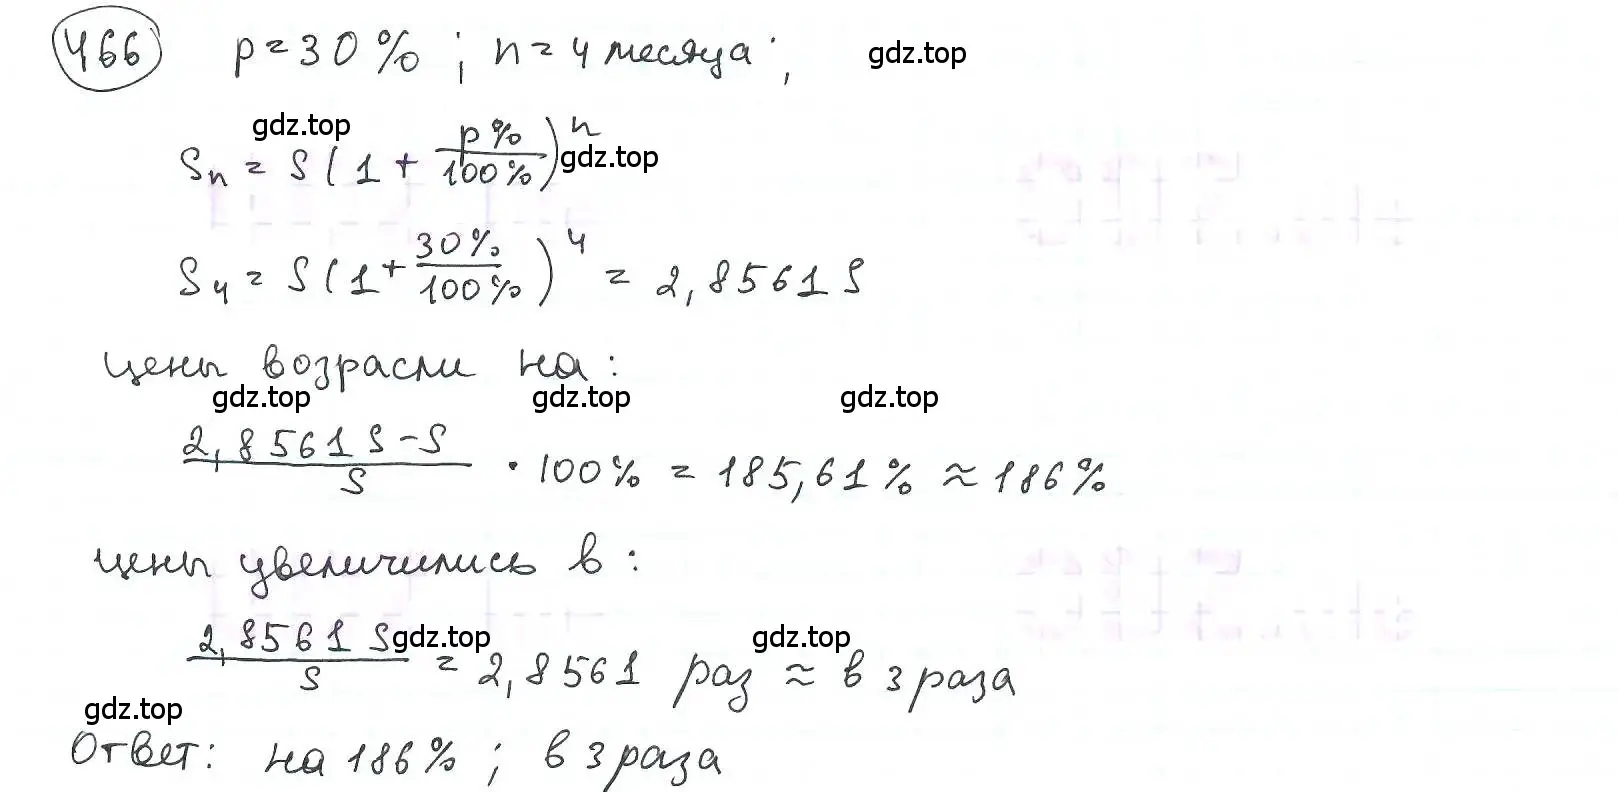 466 p = 30 % ; n = 4 месяца ; gdz.top
gdz.top
Sn = S(1 + p%/100%)^n gdz.top
S4 = S(1 + 30%/100%)^4 = 2,8561 S
цены возрасли на :
gdz.top gdz.top gdz.top
2,8561 S - S / S · 100% = 185,61 % ≈ 186 %
цены увеличились в :
2,8561 S / S = 2,8561 раз ≈ в 3 раза
gdz.top gdz.top
gdz.top
Ответ: на 186% ; в 3 раза